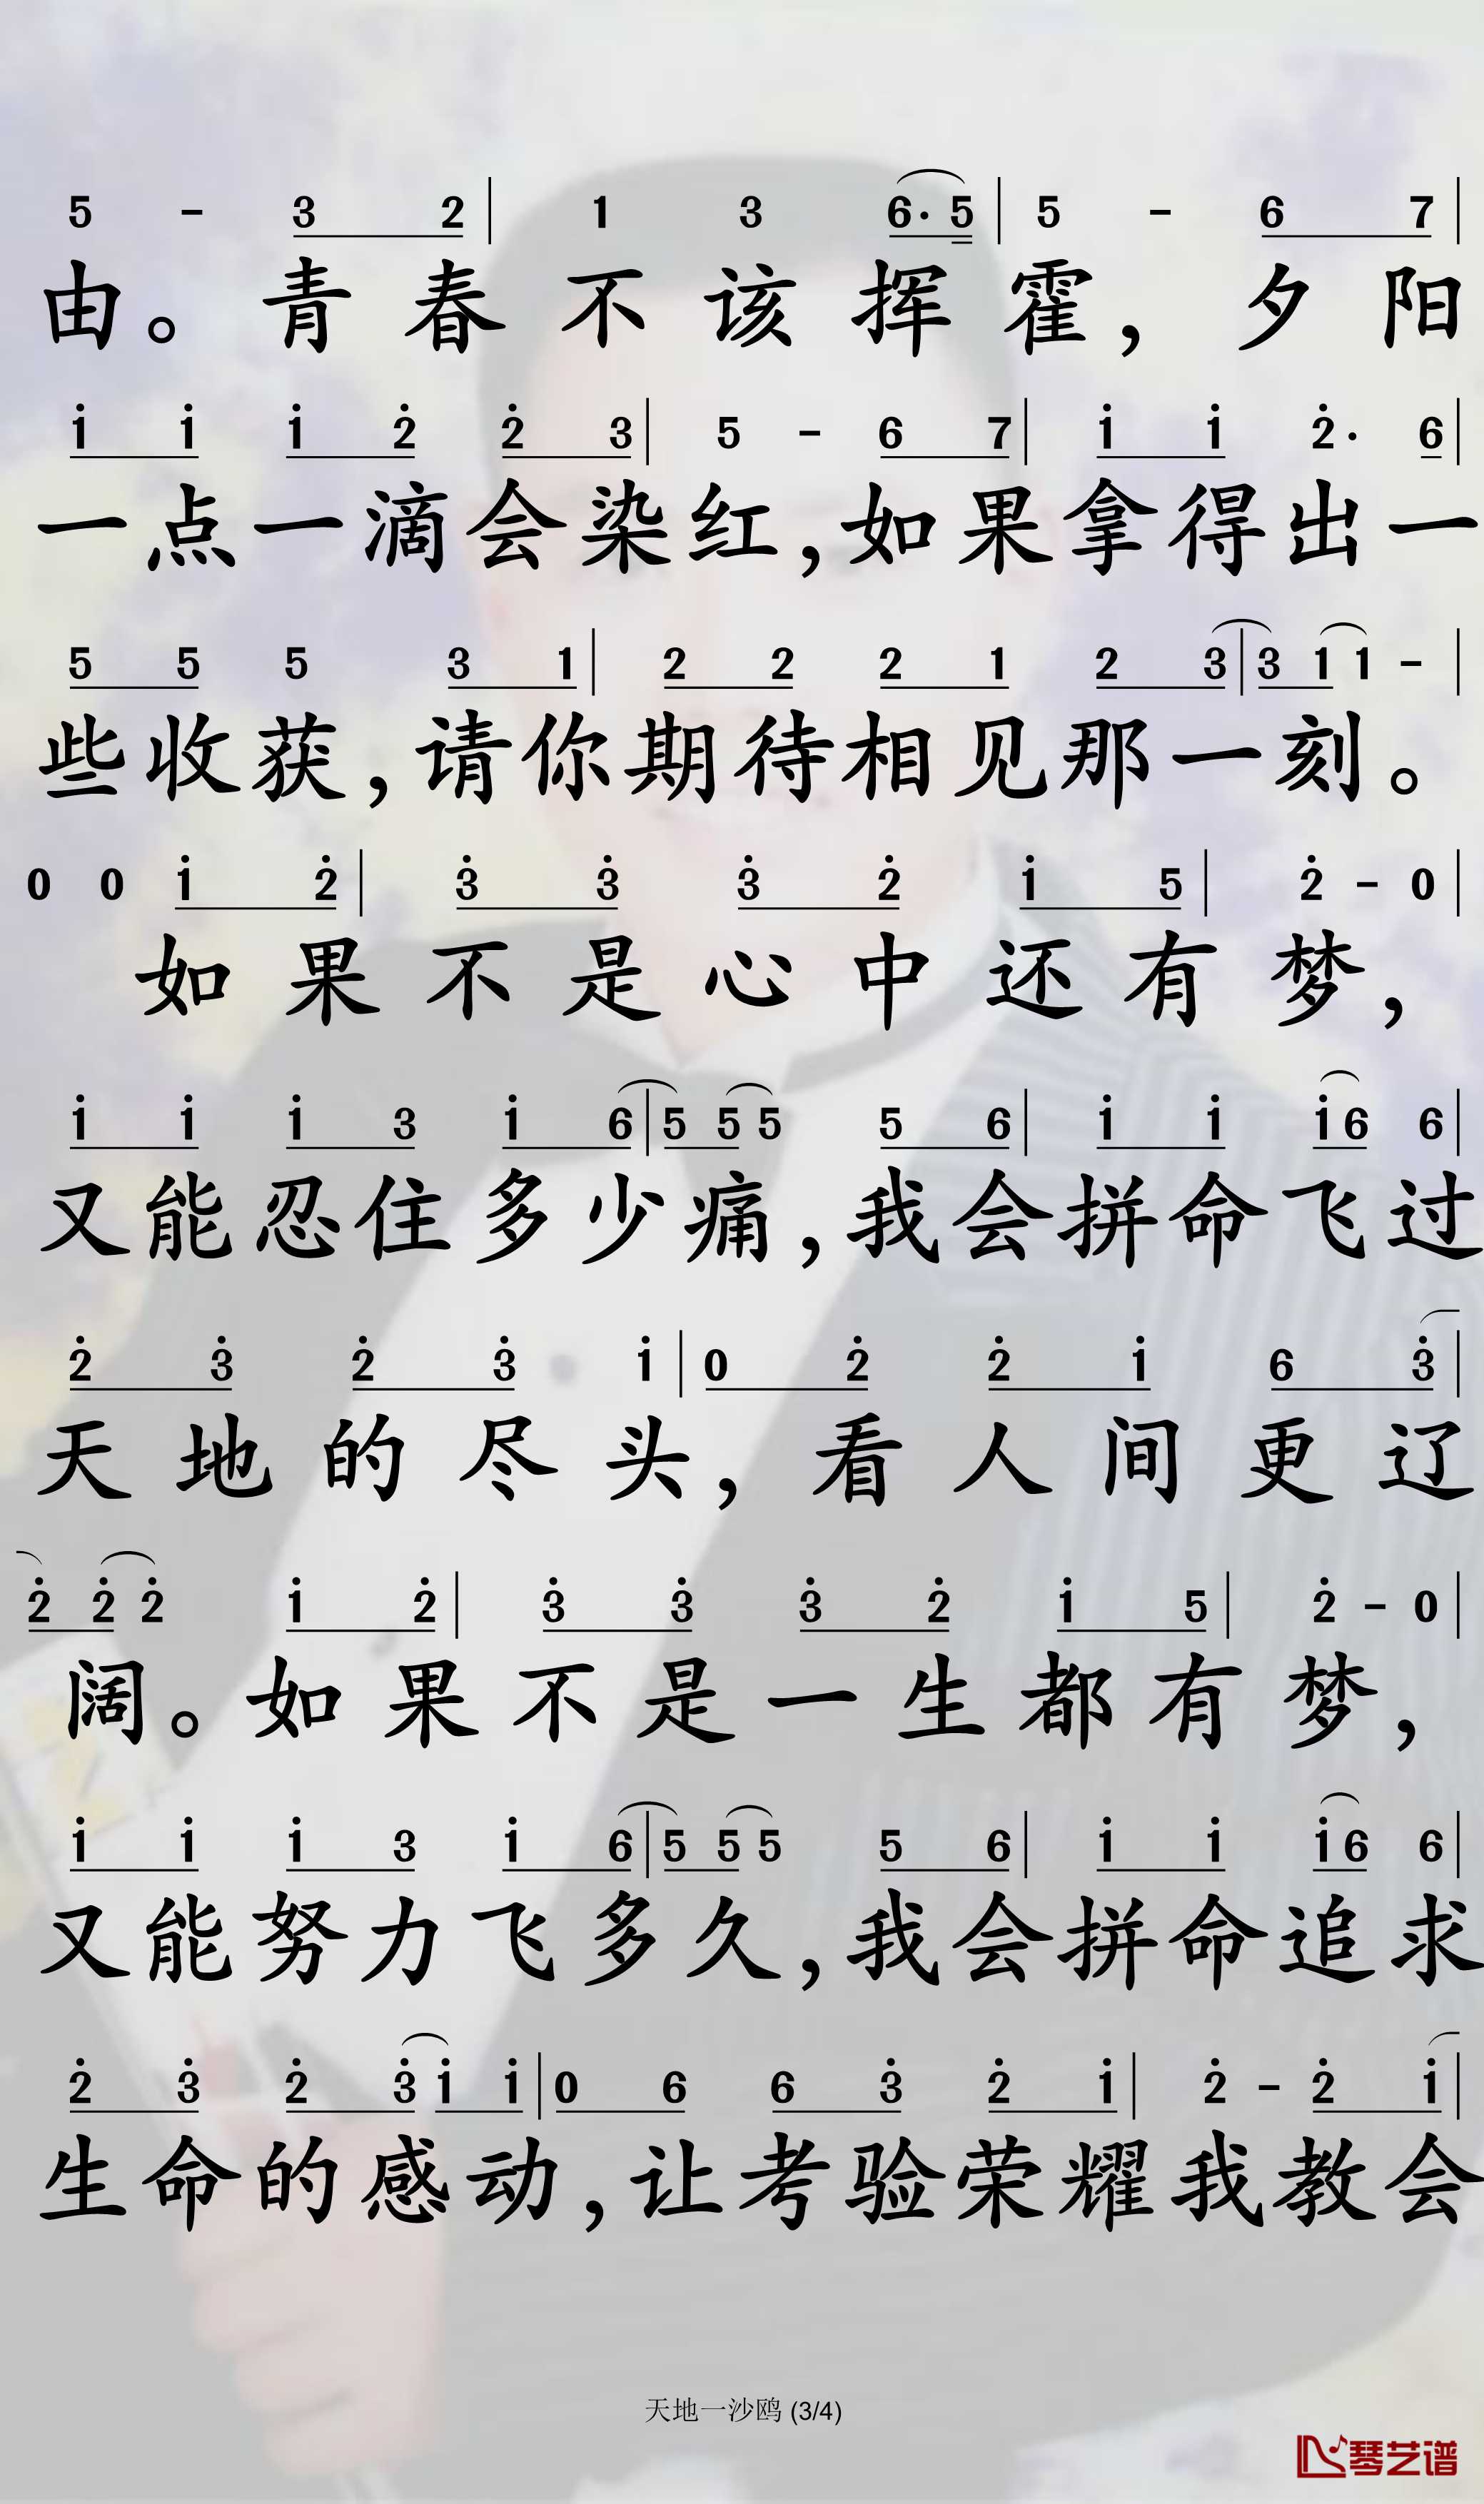 5 - 3 2 | 1 3 6· 5 | 5 - 6 7 |
由。青春不该挥霍，夕阳
i i i 2̇ 2̇ 3 | 5 - 6 7 | i i 2̇· 6 |
一点一滴会染红，如果拿得出一
5 5 5 3 1 | 2 2 2 1 2 3 | 3 1 1 - |
些收获，请你期待相见那一刻。
0 0 i 2̇ | 3̇ 3̇ 3̇ 2̇ i 5 | 2̇ - 0 |
如果不是心中还有梦，
i i i 3 i 6 | 5 5 5 5 6 | i i i 6 6 |
又能忍住多少痛，我会拼命飞过
2̇ 3̇ 2̇ 3̇ i | 0 2̇ 2̇ i 6 3̇ |
天地的尽头，看人间更辽
2̇ 2̇ 2̇ i 2̇ | 3̇ 3̇ 3̇ 2̇ i 5 | 2̇ - 0 |
阔。如果不是一生都有梦，
i i i 3 i 6 | 5 5 5 5 6 | i i i 6 6 |
又能努力飞多久，我会拼命追求
2̇ 3̇ 2̇ 3̇ i i | 0 6 6 3̇ 2̇ i | 2̇ - 2̇ i |
生命的感动，让考验荣耀我教会
天地一沙鸥 (3/4)
琴艺谱